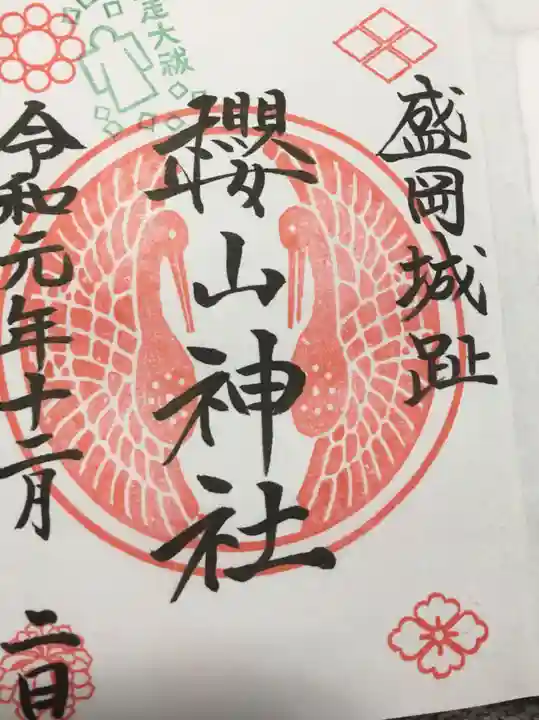 盛岡城趾
櫻山神社
令和元年十二月二日
走大祓